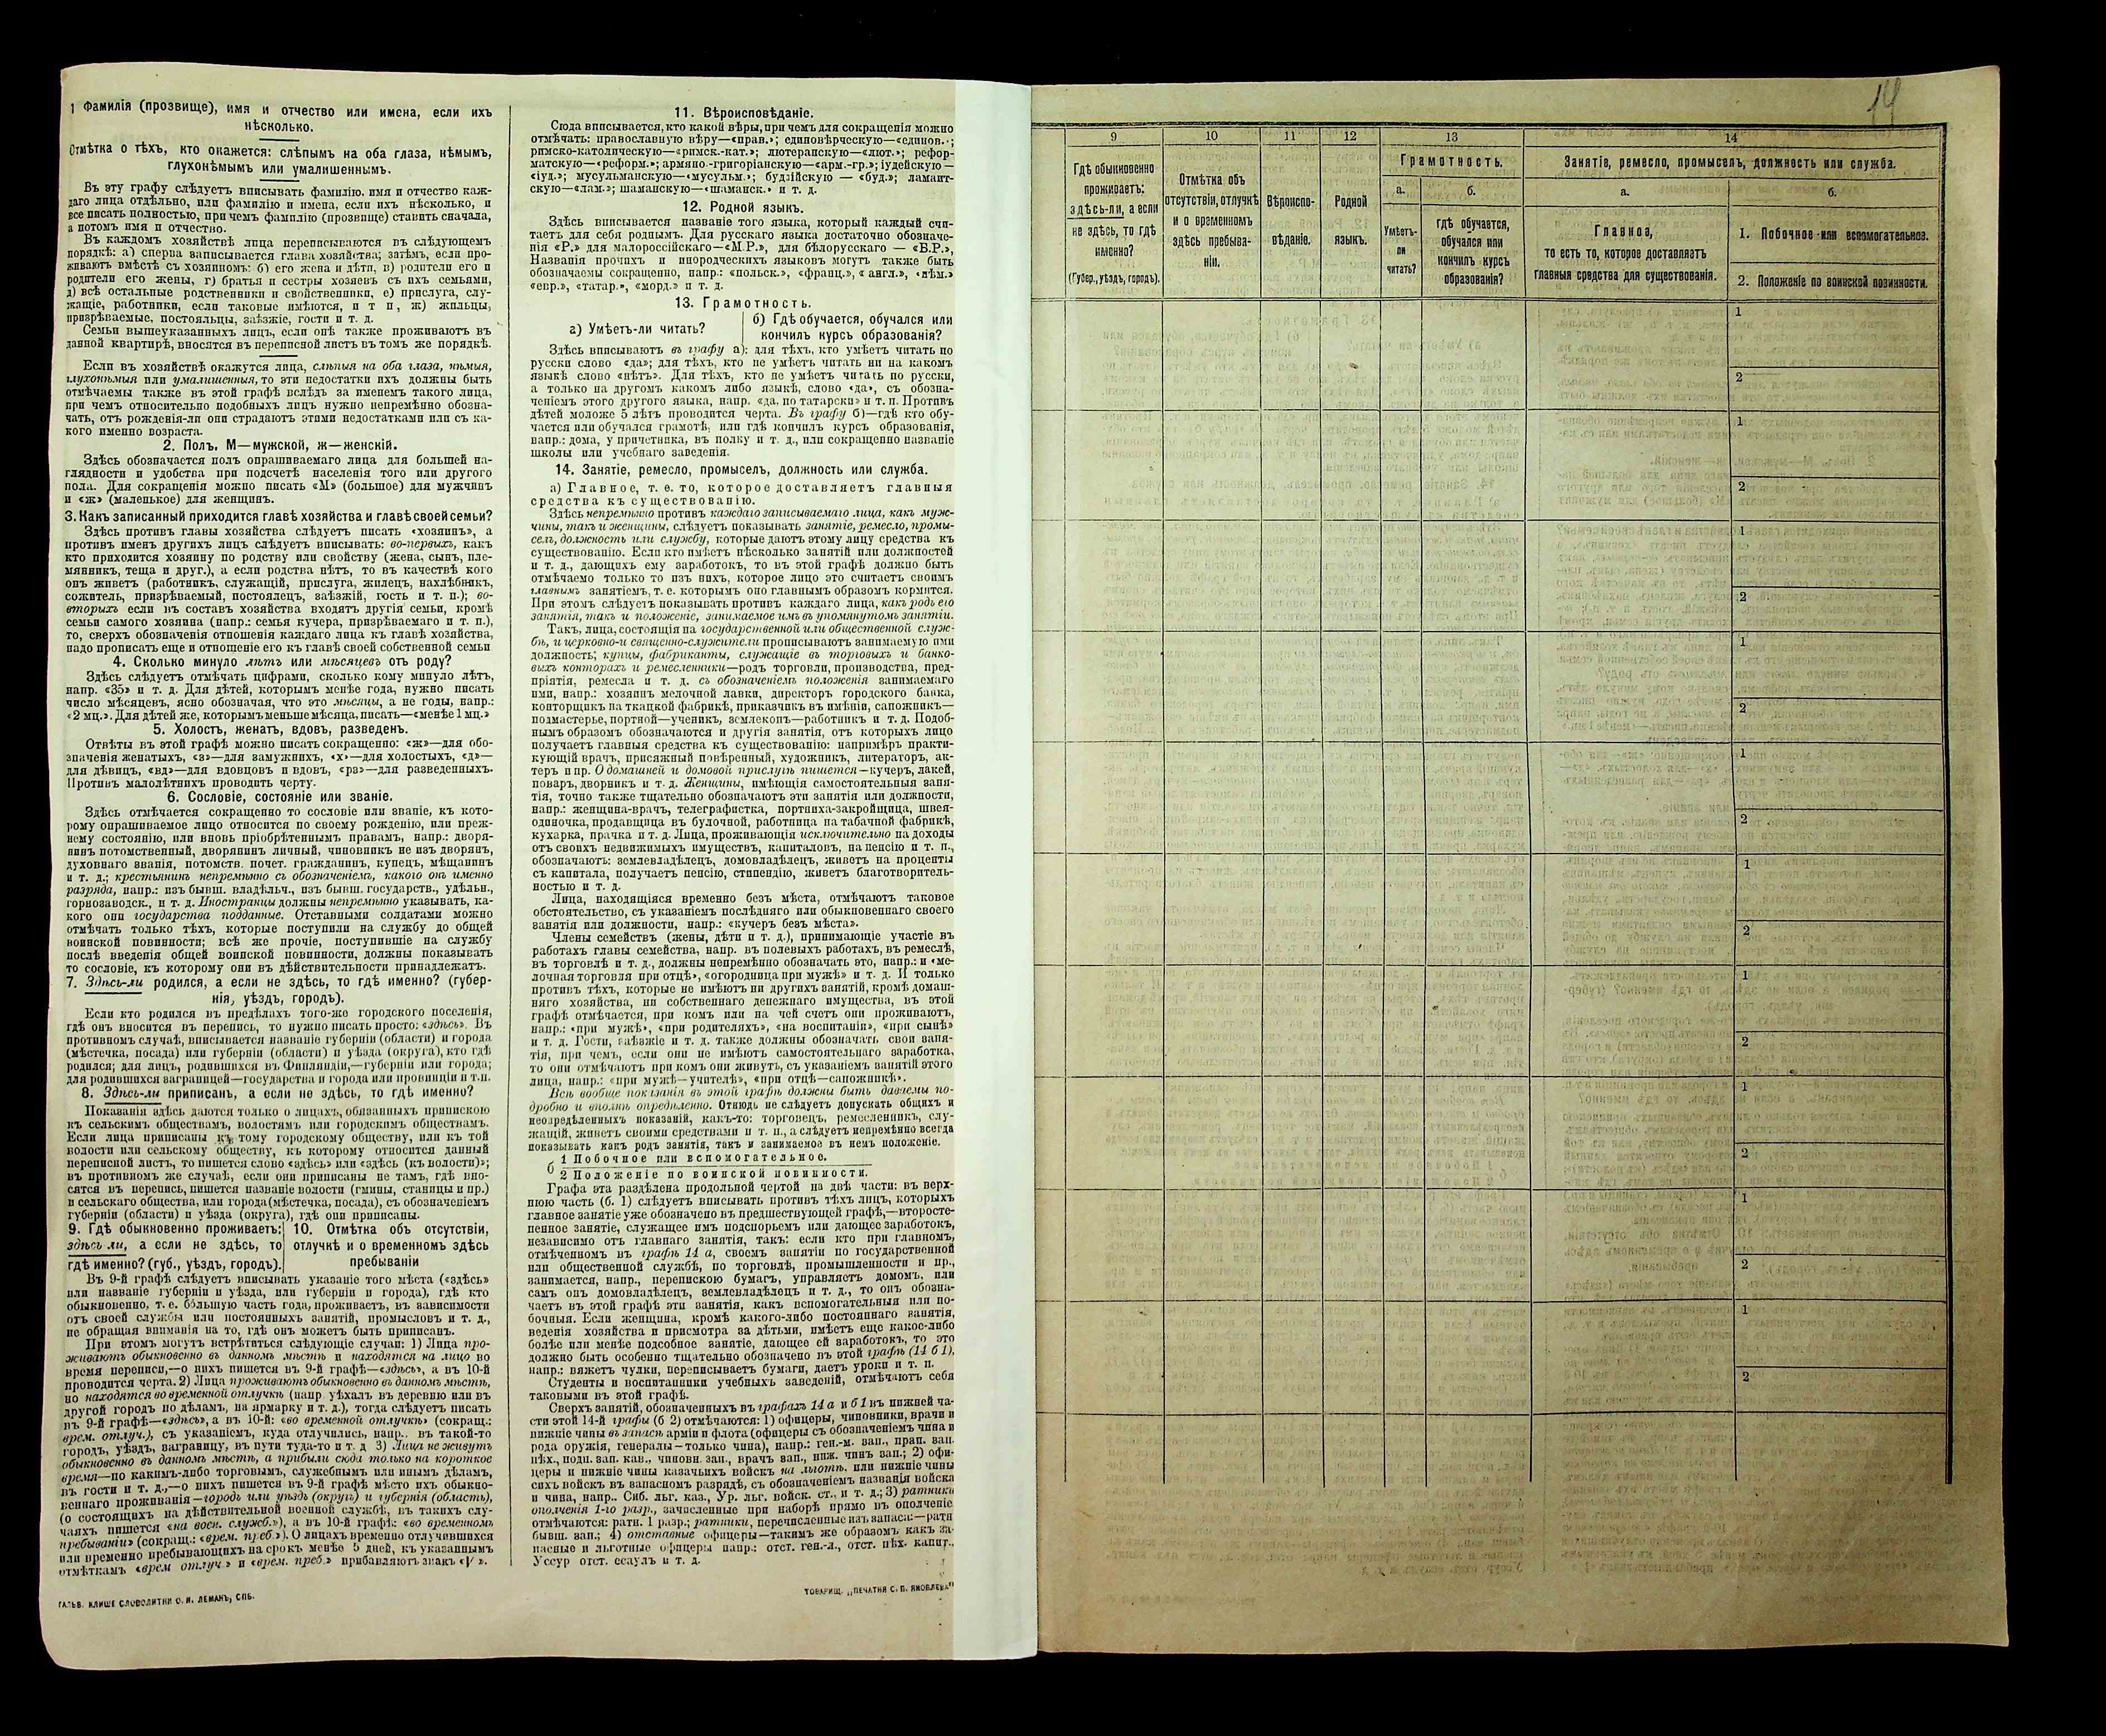 1 Фамилія (прозвище), имя и отчество или имена, если ихъ
нѣсколько.
Отмѣтка о тѣхъ, кто окажется: слѣпымъ на оба глаза, нѣмымъ,
глухонѣмымъ или умалишеннымъ.
Въ эту графу слѣдуетъ вписывать фамилію, имя и отчество каж-
даго лица отдѣльно, или фамилію и имена, если ихъ нѣсколько, и
все писать полностью, при чемъ фамилію (прозвище) ставить сначала,
а потомъ имя и отчество.
Въ каждомъ хозяйствѣ лица переписываются въ слѣдующемъ
порядкѣ: а) сперва записывается глава хозяйства; затѣмъ, если про-
живаютъ вмѣстѣ съ хозяиномъ: б) его жена и дѣти, в) родители его и
родители его жены, г) братья и сестры хозяевъ съ ихъ семьями,
д) всѣ остальные родственники и свойственники, е) прислуга, слу-
жащіе, работники, если таковые имѣются, и т п, ж) жильцы,
призрѣваемые, постояльцы, заѣзжіе, гости и т. д.
Семьи вышеуказанныхъ лицъ, если онѣ также проживаютъ въ
данной квартирѣ, вносятся въ переписной листъ въ томъ же порядкѣ.
Если въ хозяйствѣ окажутся лица, слѣпыя на оба глаза, нѣмыя,
глухонѣмыя или умалишенныя, то эти недостатки ихъ должны быть
отмѣчаемы также въ этой графѣ вслѣдъ за именемъ такого лица,
при чемъ относительно подобныхъ лицъ нужно непремѣнно обозна-
чать, отъ рожденія-ли они страдаютъ этими недостатками или съ ка-
кого именно возраста.
2. Полъ, М—мужской, ж—женскій.
Здѣсь обозначается полъ опрашиваемаго лица для большей на-
глядности и удобства при подсчетѣ населенія того или другого
пола. Для сокращенія можно писать «М» (большое) для мужчинъ
и «ж» (маленькое) для женщинъ.
3. Какъ записанный приходится главѣ хозяйства и главѣ своей семьи?
Здѣсь противъ главы хозяйства слѣдуетъ писать «хозяинъ», а
противъ именъ другихъ лицъ слѣдуетъ вписывать: во-первыхъ, какъ
кто приходится хозяину по родству или свойству (жена, сынъ, пле-
мянникъ, теща и друг.), а если родства нѣтъ, то въ качествѣ кого
онъ живетъ (работникъ, служащій, прислуга, жилецъ, нахлѣбникъ,
сожитель, призрѣваемый, постоялецъ, заѣзжій, гость и т. п.); во-
вторыхъ если въ составъ хозяйства входятъ другія семьи, кромѣ
семьи самого хозяина (напр.: семья кучера, призрѣваемаго и т. п.),
то, сверхъ обозначенія отношенія каждаго лица къ главѣ хозяйства,
надо прописать еще и отношеніе его къ главѣ своей собственной семьи
4. Сколько минуло лѣтъ или мѣсяцевъ отъ роду?
Здѣсь слѣдуетъ отмѣчать цифрами, сколько кому минуло лѣтъ,
напр. «35» и т. д. Для дѣтей, которымъ менѣе года, нужно писать
число мѣсяцевъ, ясно обозначая, что это мѣсяцы, а не годы, напр.:
«2 мц.». Для дѣтей же, которымъ меньше мѣсяца, писать—«менѣе 1 мц.»
5. Холостъ, женатъ, вдовъ, разведенъ.
Отвѣты въ этой графѣ можно писать сокращенно: «ж»—для обо-
значенія женатыхъ, «з»—для замужнихъ, «х»—для холостыхъ, «д»—
для дѣвицъ, «вд»—для вдовцовъ и вдовъ, «рз»—для разведенныхъ.
Противъ малолѣтнихъ проводить черту.
6. Сословіе, состояніе или званіе.
Здѣсь отмѣчается сокращенно то сословіе или званіе, къ кото-
рому опрашиваемое лицо относится по своему рожденію, или преж-
нему состоянію, или вновь пріобрѣтеннымъ правамъ, напр.: дворя-
нинъ потомственный, дворянинъ личный, чиновникъ не изъ дворянъ,
духовнаго званія, потомств. почет. гражданинъ, купецъ, мѣщанинъ
и т. д.; крестьянинъ непремѣнно съ обозначеніемъ, какого онъ именно
разряда, напр.: изъ бывш. владѣльч., изъ бывш. государств., удѣльн.,
горнозаводск., и т. д. Иностранцы должны непремѣнно указывать, ка-
кого они государства подданные. Отставными солдатами можно
отмѣчать только тѣхъ, которые поступили на службу до общей
воинской повинности; всѣ же прочіе, поступившіе на службу
послѣ введенія общей воинской повинности, должны показывать
то сословіе, къ которому они въ дѣйствительности принадлежатъ.
7. Здѣсь-ли родился, а если не здѣсь, то гдѣ именно? (губер-
нія, уѣздъ, городъ).
Если кто родился въ предѣлахъ того-же городского поселенія,
гдѣ онъ вносится въ перепись, то нужно писать просто: «здѣсь». Въ
противномъ случаѣ, вписывается названіе губерніи (области) и города
(мѣстечка, посада) или губерніи (области) и уѣзда (округа), кто гдѣ
родился; для лицъ, родившихся въ Финляндіи,—губерніи или города;
для родившихся заграницей—государства и города или провинціи и т.п.
8. Здѣсь-ли приписанъ, а если не здѣсь, то гдѣ именно?
Показанія здѣсь даются только о лицахъ, обязанныхъ припискою
къ сельскимъ обществамъ, волостямъ или городскимъ обществамъ.
Если лица приписаны къ тому городскому обществу, или къ той
волости или сельскому обществу, къ которому относится данный
переписной листъ, то пишется слово «здѣсь» или «здѣсь (къ волости)»;
въ противномъ же случаѣ, если они приписаны не тамъ, гдѣ вно-
сятся въ перепись, пишется названіе волости (гмины, станицы и пр.)
и сельскаго общества, или города (мѣстечка, посада), съ обозначеніемъ
губерніи (области) и уѣзда (округа), гдѣ они приписаны.
9. Гдѣ обыкновенно проживаетъ:
здѣсь ли, а если не здѣсь, то
гдѣ именно? (губ., уѣздъ, городъ).
10. Отмѣтка объ отсутствіи,
отлучкѣ и о временномъ здѣсь
пребываніи
Въ 9-й графѣ слѣдуетъ вписывать указаніе того мѣста («здѣсь»
или названіе губерніи и уѣзда, или губерніи и города), гдѣ кто
обыкновенно, т. е. бо́льшую часть года, проживаетъ, въ зависимости
отъ своей службы или постоянныхъ занятій, промысловъ и т. д.,
не обращая вниманія на то, гдѣ онъ можетъ быть приписанъ.
При этомъ могутъ встрѣтиться слѣдующіе случаи: 1) Лица про-
живаютъ обыкновенно въ данномъ мѣстѣ и находятся на лицо во
время переписи,—о нихъ пишется въ 9-й графѣ—«здѣсь», а въ 10-й
проводится черта. 2) Лица проживаютъ обыкновенно въ данномъ мѣстѣ,
но находятся во временной отлучкѣ (напр уѣхалъ въ деревню или въ
другой городъ по дѣламъ, на ярмарку и т. д.), тогда слѣдуетъ писать
въ 9-й графѣ—«здѣсь», а въ 10-й: «во временной отлучкѣ» (сокращ.:
врем. отлуч.), съ указаніемъ, куда отлучились, напр.. въ такой-то
городъ, уѣздъ, заграницу, въ пути туда-то и т. д 3) Лица не живутъ
обыкновенно въ данномъ мѣстѣ, а прибыли сюда только на короткое
время—по какимъ-либо торговымъ, служебнымъ или инымъ дѣламъ,
въ гости и т. д.,—о нихъ пишется въ 9-й графѣ мѣсто ихъ обыкно-
веннаго проживанія—городъ или уѣздъ (округъ) и губернія (область),
(о состоящихъ на дѣйствительной военной службѣ, въ такихъ слу-
чаяхъ пишется «на воен. служб.»), а въ 10-й графѣ: «во временномъ
пребываніи» (сокращ.: «врем. преб.»). О лицахъ временно отлучившихся
или временно пребывающихъ на срокъ менѣе 5 дней, къ указаннымъ
отмѣткамъ «врем отлуч.» и «врем. преб.» прибавляютъ знакъ «V».
ГАЛЬВ. КЛИШЕ СЛОВОЛИТНИ О. И. ЛЕМАНЪ, СПБ.
11. Вѣроисповѣданіе.
Сюда вписывается, кто какой вѣры, при чемъ для сокращенія можно
отмѣчать: православную вѣру—«прав.»; единовѣрческую—«единов.»;
римско-католическую—«римск.-кат.»; лютеранскую—«лют.»; рефор-
матскую—«реформ.»; армяно-григоріанскую—«арм.-гр.»; іудейскую—
«іуд.»; мусульманскую—«мусульм.»; буддійскую — «буд.»; ламаит-
скую—«лам.»; шаманскую—«шаманск.» и т. д.
12. Родной языкъ.
Здѣсь вписывается названіе того языка, который каждый счи-
таетъ для себя роднымъ. Для русскаго языка достаточно обозначе-
нія «Р.» для малороссійскаго—«М.Р.», для бѣлорусскаго — «Б.Р.»,
Названія прочихъ и инородческихъ языковъ могутъ также быть
обозначаемы сокращенно, напр.: «польск.», «франц.», «англ.», «нѣм.»
«евр.», «татар.», «морд.» и т. д.
13. Грамотность.
а) Умѣетъ-ли читать?
б) Гдѣ обучается, обучался или
кончилъ курсъ образованія?
Здѣсь вписываютъ въ графу а): для тѣхъ, кто умѣетъ читать по
русски слово «да»; для тѣхъ, кто не умѣетъ читать ни на какомъ
языкѣ слово «нѣтъ». Для тѣхъ, кто не умѣетъ читать по русски,
а только на другомъ какомъ либо языкѣ, слово «да», съ обозна-
ченіемъ этого другого языка, напр. «да, по татарски» и т. п. Противъ
дѣтей моложе 5 лѣтъ проводится черта. Въ графу б)—гдѣ кто обу-
чается или обучался грамотѣ, или гдѣ кончилъ курсъ образованія,
напр.: дома, у причетника, въ полку и т. д., или сокращенно названіе
школы или учебнаго заведенія.
14. Занятіе, ремесло, промыселъ, должность или служба.
а) Главное, т. е. то, которое доставляетъ главныя
средства къ существованію.
Здѣсь непремѣнно противъ каждаго записываемаго лица, какъ муж-
чины, такъ и женщины, слѣдуетъ показывать занятіе, ремесло, промы-
селъ, должность или службу, которые даютъ этому лицу средства къ
существованію. Если кто имѣетъ нѣсколько занятій или должностей
и т. д., дающихъ ему заработокъ, то въ этой графѣ должно быть
отмѣчаемо только то изъ нихъ, которое лицо это считаетъ своимъ
главнымъ занятіемъ, т. е. которымъ оно главнымъ образомъ кормится.
При этомъ слѣдуетъ показывать противъ каждаго лица, какъ родъ его
занятія, такъ и положеніе, занимаемое имъ въ упомянутомъ занятіи.
Такъ, лица, состоящія на государственной или общественной служ-
бѣ, и церковно-и священно-служители прописываютъ занимаемую ими
должность; купцы, фабриканты, служащіе въ торговыхъ и банко-
выхъ конторахъ и ремесленники—родъ торговли, производства, пред-
пріятія, ремесла и т. д. съ обозначеніемъ положенія занимаемаго
ими, напр.: хозяинъ мелочной лавки, директоръ городского банка,
конторщикъ на ткацкой фабрикѣ, приказчикъ въ имѣніи, сапожникъ—
подмастерье, портной—ученикъ, землекопъ—работникъ и т. д. Подоб-
нымъ образомъ обозначаются и другія занятія, отъ которыхъ лицо
получаетъ главныя средства къ существованію: напримѣръ практи-
кующій врачъ, присяжный повѣренный, художникъ, литераторъ, ак-
теръ и пр. О домашней и домовой прислугѣ пишется—кучеръ, лакей,
поваръ, дворникъ и т. д. Женщины, имѣющія самостоятельныя заня-
тія, точно также тщательно обозначаютъ эти занятія или должности,
напр.: женщина-врачъ, телеграфистка, портниха-закройщица, швея-
одиночка, продавщица въ булочной, работница на табачной фабрикѣ,
кухарка, прачка и т. д. Лица, проживающія исключительно на доходы
отъ своихъ недвижимыхъ имуществъ, капиталовъ, на пенсію и т. п.,
обозначаютъ: землевладѣлецъ, домовладѣлецъ, живетъ на проценты
съ капитала, получаетъ пенсію, стипендію, живетъ благотворитель-
ностью и т. д.
Лица, находящіяся временно безъ мѣста, отмѣчаютъ таковое
обстоятельство, съ указаніемъ послѣдняго или обыкновеннаго своего
занятія или должности, напр.: «кучеръ безъ мѣста».
Члены семействъ (жены, дѣти и т. д.), принимающіе участіе въ
работахъ главы семейства, напр. въ полевыхъ работахъ, въ ремеслѣ,
въ торговлѣ и т. д., должны непремѣнно обозначать это, напр.: и «ме-
лочная торговля при отцѣ», «огородница при мужѣ» и т. д. И только
противъ тѣхъ, которые не имѣютъ ни другихъ занятій, кромѣ домаш-
няго хозяйства, ни собственнаго денежнаго имущества, въ этой
графѣ отмѣчается, при комъ или на чей счетъ они проживаютъ,
напр.: «при мужѣ», «при родителяхъ», «на воспитаніи», «при сынѣ»
и т. д. Гости, заѣзжіе и т. д. также должны обозначать свои заня-
тія, при чемъ, если они не имѣютъ самостоятельнаго заработка,
то они отмѣчаютъ при комъ они живутъ, съ указаніемъ занятій этого
лица, напр.: «при мужѣ—учителѣ», «при отцѣ—сапожникѣ».
Всѣ вообще показанія въ этой графѣ должны быть даваемы по-
дробно и вполнѣ опредѣленно. Отнюдь не слѣдуетъ допускать общихъ и
неопредѣленныхъ показаній, какъ-то: торговецъ, ремесленникъ, слу-
жащій, живетъ своими средствами и т. п., а слѣдуетъ непремѣнно всегда
показывать какъ родъ занятія, такъ и занимаемое въ немъ положеніе.
б 1 Побочное или вспомогательное.
2 Положеніе по воинской повинности.
Графа эта раздѣлена продольной чертой на двѣ части: въ верх-
нюю часть (б. 1) слѣдуетъ вписывать противъ тѣхъ лицъ, которыхъ
главное занятіе уже обозначено въ предшествующей графѣ,—второсте-
пенное занятіе, служащее имъ подспорьемъ или дающее заработокъ,
независимо отъ главнаго занятія, такъ: если кто при главномъ,
отмѣченномъ въ графѣ 14 а, своемъ занятіи по государственной
или общественной службѣ, по торговлѣ, промышленности и пр.,
занимается, напр., перепискою бумагъ, управляетъ домомъ, или
самъ онъ домовладѣлецъ, землевладѣлецъ и т. д., то онъ обозна-
чаетъ въ этой графѣ эти занятія, какъ вспомогательныя или по-
бочныя. Если женщина, кромѣ какого-либо постояннаго занятія,
веденія хозяйства и присмотра за дѣтьми, имѣетъ еще какое-либо
болѣе или менѣе подсобное занятіе, дающее ей заработокъ, то это
должно быть особенно тщательно обозначено въ этой графѣ (14 б 1),
напр.: вяжетъ чулки, переписываетъ бумаги, даетъ уроки и т. п.
Студенты и воспитанники учебныхъ заведеній, отмѣчаютъ себя
таковыми въ этой графѣ.
Сверхъ занятій, обозначенныхъ въ графахъ 14 а и б 1 въ нижней ча-
сти этой 14-й графы (б 2) отмѣчаются: 1) офицеры, чиновники, врачи и
нижніе чины въ запасѣ арміи и флота (офицеры съ обозначеніемъ чина и
рода оружія, генералы—только чина), напр.: ген.-м. зап., прап. зап.
пѣх., подп. зап. кав., чиновн. зап., врачъ зап., ниж. чинъ зап.; 2) офи-
церы и нижніе чины казачьихъ войскъ на льготѣ, или нижніе чины
сихъ войскъ въ запасномъ разрядѣ, съ обозначеніемъ названія войска
и чина, напр.. Сиб. льг. каз., Ур. льг. войск. ст., и т. д.; 3) ратники
ополченія 1-го разр., зачисленные при наборѣ прямо въ ополченіе
отмѣчаются: ратн. 1 разр.; ратники, перечисленные изъ запаса:—ратн
бывш. зап.; 4) отставные офицеры—такимъ же образомъ какъ за-
пасные и льготные офицеры напр.: отст. ген.-л., отст. пѣх. капит.,
Уссур отст. есаулъ и т. д.
ТОВАРИЩ. „ПЕЧАТНЯ С. П. ЯКОВЛЕВА"
14
9
10
11
12
13
14
Гдѣ обыкновенно
проживаетъ:
здѣсь-ли, а если
не здѣсь, то гдѣ
именно?
(Губер., уѣздъ, городъ).
Отмѣтка объ
отсутствіи, отлучкѣ
и о временномъ
здѣсь пребыва-
ніи.
Вѣроиспо-
вѣданіе.
Родной
языкъ.
Грамотность.
а.
Умѣетъ-
ли
читать?
б.
гдѣ обучается,
обучался или
кончилъ курсъ
образованія?
Занятіе, ремесло, промыселъ, должность или служба.
а.
Главное,
то есть то, которое доставляетъ
главныя средства для существованія.
б.
1. Побочное или вспомогательное.
2. Положеніе по воинской повинности.
1
2
1
2
1
2
1
2
1
2
1
2
1
2
1
2
1
2
1
2